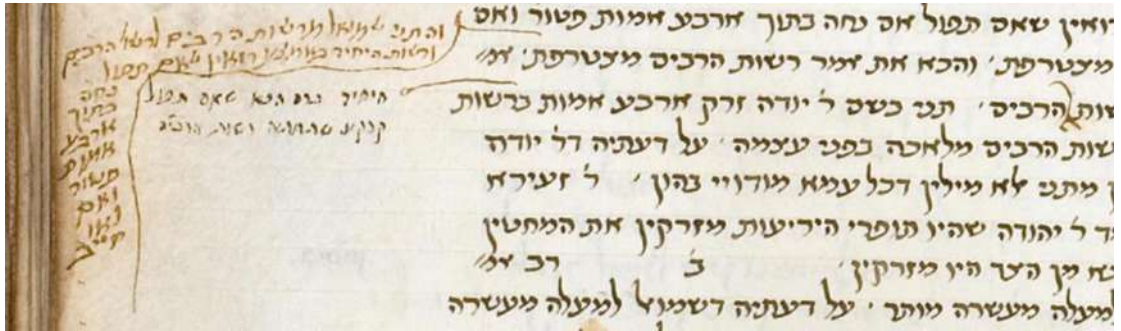 רואין שאם תפול אם נחה בתוך ארבע אמות פטור ואם
מצטרפת ׳ והכא את אמר רשות הרבים מצטרפת ׳ אמ׳
שות הרבים ׳ תני בשם ר׳ יודה זרק ארבע אמות ברשות
שות הרבים מלאכה בפני עצמה ׳ על דעתיה דר׳ יודה
מתני לא מילין דכל עמא מודויי בהון ׳ ר׳ זעירא
ר׳ יהודה שהיו תופרי היריעות מזרקין את המחטין
מן הצד היו מזרקין ׳ ב׳ רב אמ׳
למעלה מעשרה מותר ׳ על דעתיה דשמואל למעלה מעשרה
והתני שמואל מרשות הרבים לרשו׳ הרבים
ורשות היחיד באמצע רואין שאם תפול
נחה
בתוך
ארבע
אמות
פטור
ואם
לאו
חייב
היחיד שאם תפול
קרקע רשות